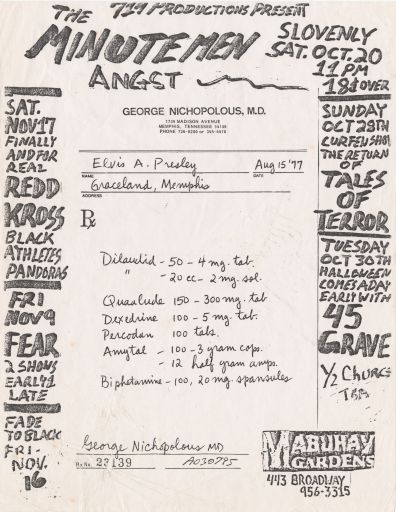 719 PRODUCTIONS PRESENT
THE
MINUTEMEN
ANGST
SLOVENLY
SAT. OCT. 20
11 PM
18 & OVER
SAT.
NOV 17
FINALLY
AND FOR
REAL
REDD
KROSS
BLACK
ATHLETES
PANDORAS
FRI
NOV 9
FEAR
2 SHOWS
EARLY 1
LATE
FADE
TO BLACK
FRI-
NOV.
16
GEORGE NICHOPOLOUS, M.D.
1734 MADISON AVENUE
MEMPHIS, TENNESSEE 38104
Elvis A. Presley Aug 15 '77
NAME DATE
Graceland, Memphis
ADDRESS
Rx
Dilaudid - 50 - 4 mg. tab.
" - 20 cc - 2 mg. sol.
Quaalude 150 - 300 mg. tab
Dexedrine 100 - 5 mg. tab.
Percodan 100 tabs.
Amytal - 100 - 3 gram caps.
- 12 half gram amps.
Biphetamine - 100, 20 mg. spansules
George Nichopolous MD
Rx No. 23139 A030795
SUNDAY
OCT 28TH
CURFEW SHOW
THE RETURN
OF
TALES
OF
TERROR
TUESDAY
OCT 30TH
HALLOWEEN
COMES A DAY
EARLY WITH
45
GRAVE
1/2 CHURCH
TBA
MABUHAY
GARDENS
443 BROADWAY
956-3315